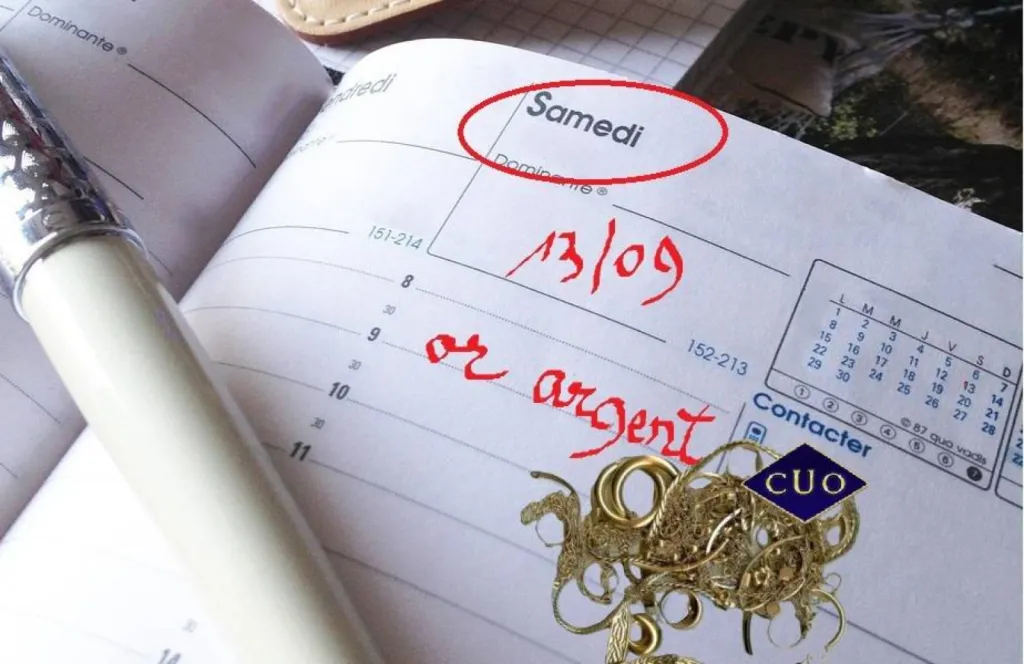 Dominante®
ndredi
Samedi
Dominante®
151-214
13/09
8
30
9
30
10
30
11
or argent
152-213
L M M J V S D
1 2 3 4 5 6 7
8 9 10 11 12 13 14
15 16 17 18 19 20 21
22 23 24 25 26 27 28
29 30
1 2 3 4 5 6 7
© 87 quo vadis
Contacter
CUO
30
14